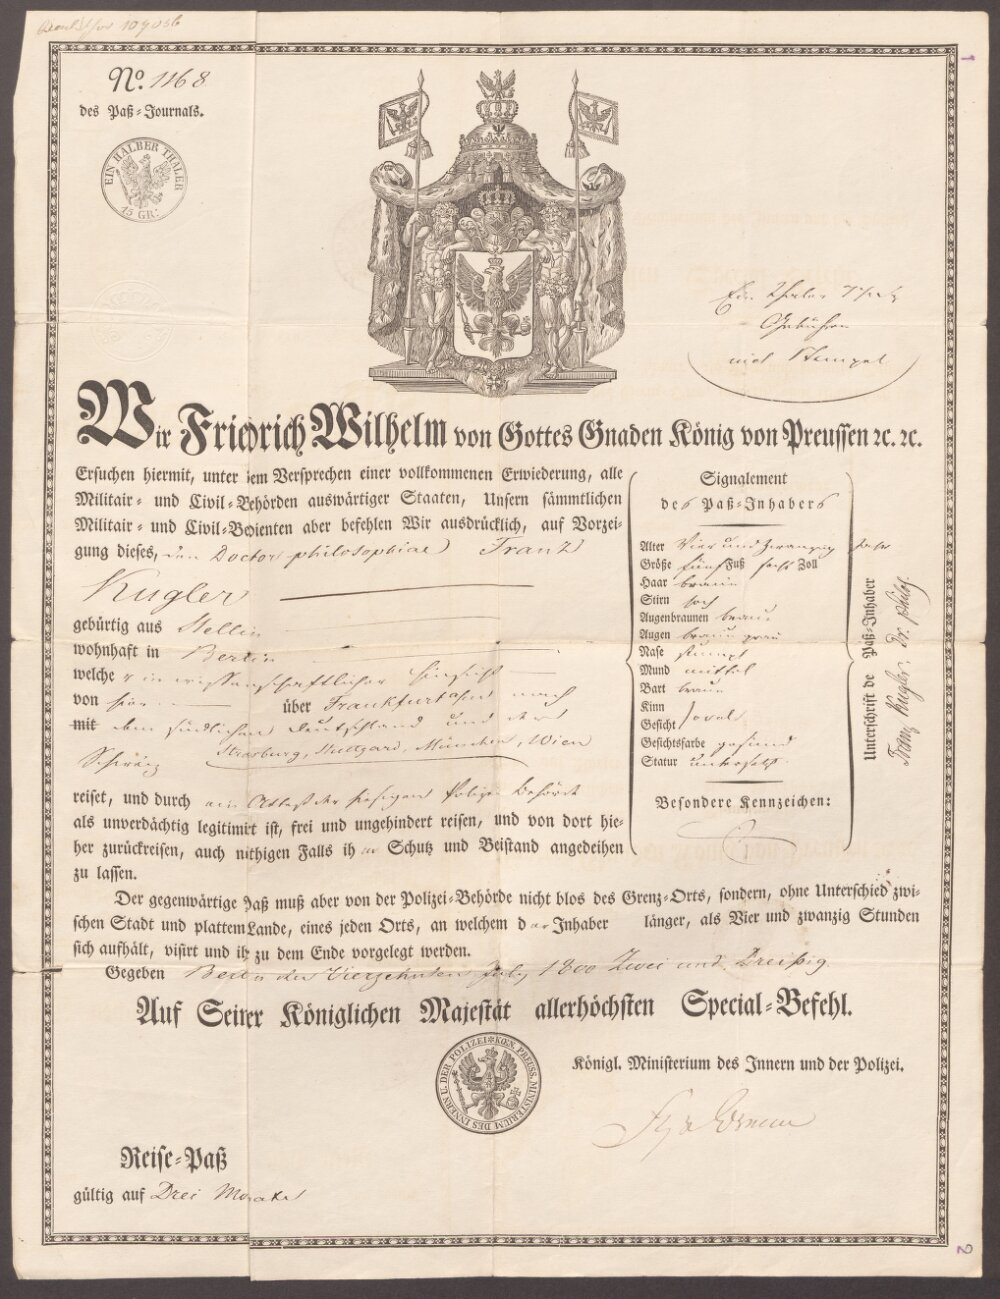 No. 1168
des Paß-Journals.
EIN HALBER THALER
15 GR:
Ein Thaler
Gebühren
und Stempel
Wir Friedrich Wilhelm von Gottes Gnaden König von Preussen ꝛc. ꝛc.
Ersuchen hiermit, unter dem Versprechen einer vollkommenen Erwiederung, alle
Militair- und Civil-Behörden auswärtiger Staaten, Unsern sämmtlichen
Militair- und Civil-Bedienten aber befehlen Wir ausdrücklich, auf Vorzei-
gung dieses, den Doctor philosophiae Franz
Kugler
gebürtig aus Stettin
wohnhaft in Berlin
welcher in wissenschaftlicher Hinsicht
von hier über Frankfurt a/m nach
mit dem südlichen Deutschland und der
Strasburg, Stuttgard, München, Wien
Schweiz
reiset, und durch ein Attest der hiesigen Polizei Behörde
als unverdächtig legitimirt ist, frei und ungehindert reisen, und von dort hie-
her zurückreisen, auch nöthigen Falls ihm Schutz und Beistand angedeihen
zu lassen.
Signalement
des Paß-Inhabers
Alter Vier und zwanzig Jahr
Größe fünf Fuß sechs Zoll
Haar braun
Stirn hoch
Augenbraunen braun
Augen braun grau
Nase stumpf
Mund mittel
Bart braun
Kinn
Gesicht oval
Gesichtsfarbe gesund
Statur untersetzt
Besondere Kennzeichen:
Unterschrift de Paß-Inhaber
Franz Kugler Dr. philos.
Der gegenwärtige Paß muß aber von der Polizei-Behörde nicht blos des Grenz-Orts, sondern, ohne Unterschied zwi-
schen Stadt und plattem Lande, eines jeden Orts, an welchem der Inhaber länger, als Vier und zwanzig Stunden
sich aufhält, visirt und ihr zu dem Ende vorgelegt werden.
Gegeben Berlin den Vierzehnten July 1800 Zwei und Dreißig
Auf Seiner Königlichen Majestät allerhöchsten Special-Befehl.
KŒN. PREUSS. MINISTERIUM DES INNERN U. DER POLIZEI
Königl. Ministerium des Innern und der Polizei.
Reise-Paß
gültig auf Drei Monate
1
2